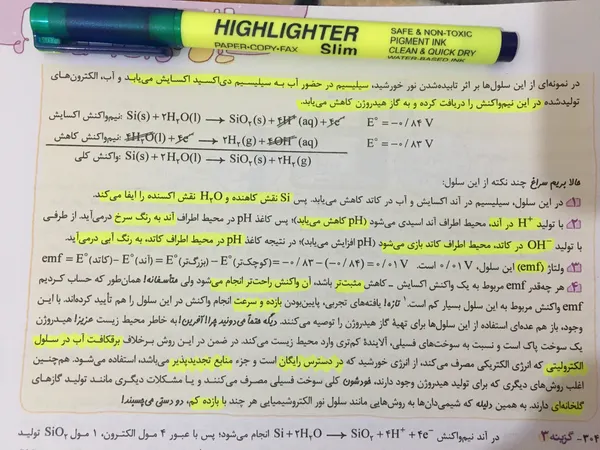 HIGHLIGHTER
Slim
PAPER•COPY•FAX
SAFE & NON-TOXIC
PIGMENT INK
CLEAN & QUICK DRY
WATER-BASED INK
در نمونه‌ای از این سلول‌ها بر اثر تابیده‌شدن نور خورشید، سیلیسیم در حضور آب به سیلیسیم دی‌اکسید اکسایش می‌یابد و آب، الکترون‌های
تولیدشده در این نیم‌واکنش را دریافت کرده و به گاز هیدروژن کاهش می‌یابد.
نیم‌واکنش اکسایش: Si(s) + ۲H₂O(l) → SiO₂(s) + ۴H⁺(aq) + ۴e⁻ E° = −۰/۸۴ V
نیم‌واکنش کاهش: ۴H₂O(l) + ۴e⁻ → ۲H₂(g) + ۴OH⁻(aq) E° = −۰/۸۳ V
واکنش کلی: Si(s) + ۲H₂O(l) → SiO₂(s) + ۲H₂(g)
حالا بریم سراغ چند نکته از این سلول:
۱ در این سلول، سیلیسیم در آند اکسایش و آب در کاتد کاهش می‌یابد. پس Si نقش کاهنده و H₂O نقش اکسنده را ایفا می‌کند.
۲ با تولید H⁺ در آند، محیط اطراف آند اسیدی می‌شود (pH کاهش می‌یابد)؛ پس کاغذ pH در محیط اطراف آند به رنگ سرخ درمی‌آید. از طرفی
با تولید OH⁻ در کاتد، محیط اطراف کاتد بازی می‌شود (pH افزایش می‌یابد)؛ در نتیجه کاغذ pH در محیط اطراف کاتد، به رنگ آبی درمی‌آید.
۳ ولتاژ (emf) این سلول، ۰/۰۱ V است. emf = E°(کاتد) − E°(آند) = E°(بزرگ‌تر) − E°(کوچک‌تر) = −۰/۸۳ − (−۰/۸۴) = ۰/۰۱ V
۴ هر چه‌قدر emf مربوط به یک واکنش اکسایش - کاهش مثبت‌تر باشد، آن واکنش راحت‌تر انجام می‌شود ولی متأسفانه! همان‌طور که حساب کردیم
emf واکنش مربوط به این سلول بسیار کم است. تازه! یافته‌های تجربی، پایین‌بودن بازده و سرعت انجام واکنش در این سلول را هم تأیید کرده‌اند. با این
وجود، باز هم عده‌ای استفاده از این سلول‌ها برای تهیهٔ گاز هیدروژن را توصیه می‌کنند. دیگه حتماً می‌دونید چرا! آفرین! به خاطر محیط زیست عزیز! هیدروژن
یک سوخت پاک است و نسبت به سوخت‌های فسیلی، آلایندهٔ کم‌تری وارد محیط زیست می‌کند. در ضمن در این روش برخلاف برقکافت آب در سلول
الکترولیتی که انرژی الکتریکی مصرف می‌کند، از انرژی خورشید که در دسترس رایگان است و جزء منابع تجدیدپذیر می‌باشد، استفاده می‌شود. هم‌چنین
اغلب روش‌های دیگری که برای تولید هیدروژن وجود دارند، خودشون کلی سوخت فسیلی مصرف می‌کنند و یا مشکلات دیگری مانند تولید گازهای
گلخانه‌ای دارند. به همین دلیله که شیمی‌دان‌ها به روش‌هایی مانند سلول نور الکتروشیمیایی هر چند با بازده کم، دو دستی می‌چسبند!
۳۰۴- گزینه ۳ در آند نیم‌واکنش Si + ۲H₂O → SiO₂ + ۴H⁺ + ۴e⁻ انجام می‌شود؛ پس با عبور ۴ مول الکترون، ۱ مول SiO₂ تولید